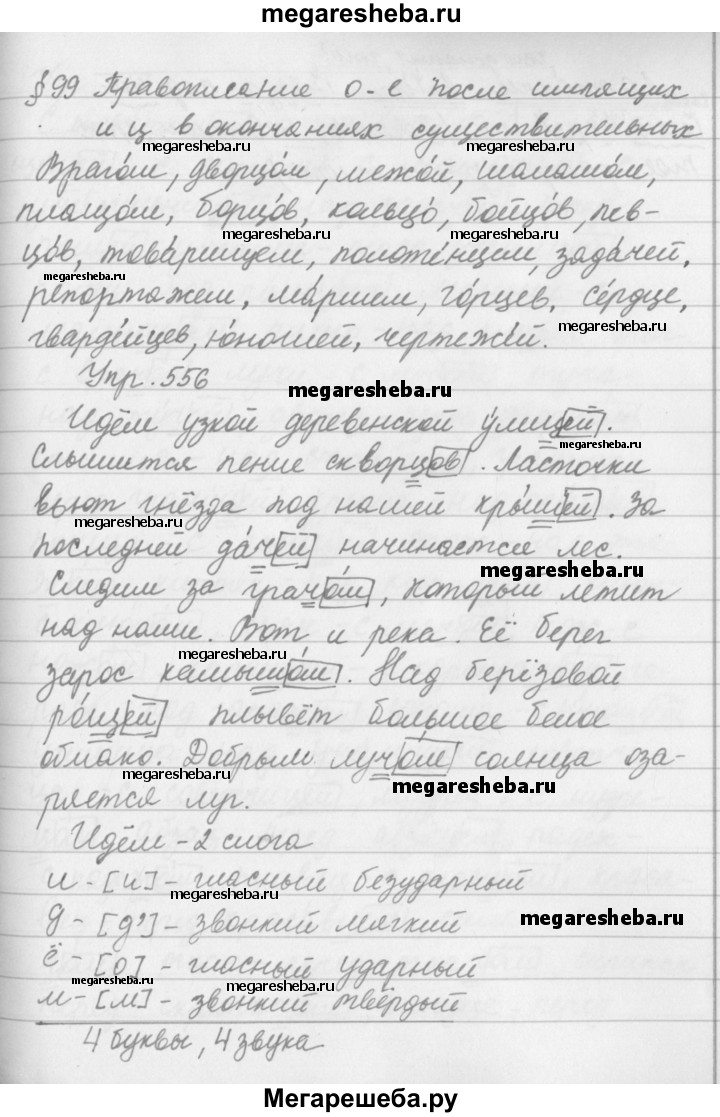 megaresheba.ru
§ 99 Правописание о-е после шипящих
и ц в окончаниях существительных
megaresheba.ru megaresheba.ru
Врагом, дворцом, межой, шалашом,
плащом, борцов, кольцо, бойцов, пев-
megaresheba.ru megaresheba.ru
цов, товарищем, полотенцем, задачей,
megaresheba.ru
репортажем, маршем, горцев, сердце,
megaresheba.ru
гвардейцев, юношей, чертежей.
Упр. 556
megaresheba.ru
Идём узкой деревенской улицей.
megaresheba.ru
Слышится пение скворцов. Ласточки
вьют гнёзда под нашей крышей. За
megaresheba.ru
последней дачей начинается лес.
megaresheba.ru
Следим за грачом, который летит
над нами. Вот и река. Её берег
megaresheba.ru
зарос камышом. Над берёзовой
рощей плывёт большое белое
облако. Добрым лучом солнца оза-
megaresheba.ru megaresheba.ru
ряется луг.
Идём - 2 слога
и - [и] - гласный безударный
megaresheba.ru
д - [д'] - звонкий мягкий
megaresheba.ru
ё - [о] - гласный ударный
megaresheba.ru
м - [м] - звонкий твёрдый
4 буквы, 4 звука
Мегарешеба.ру